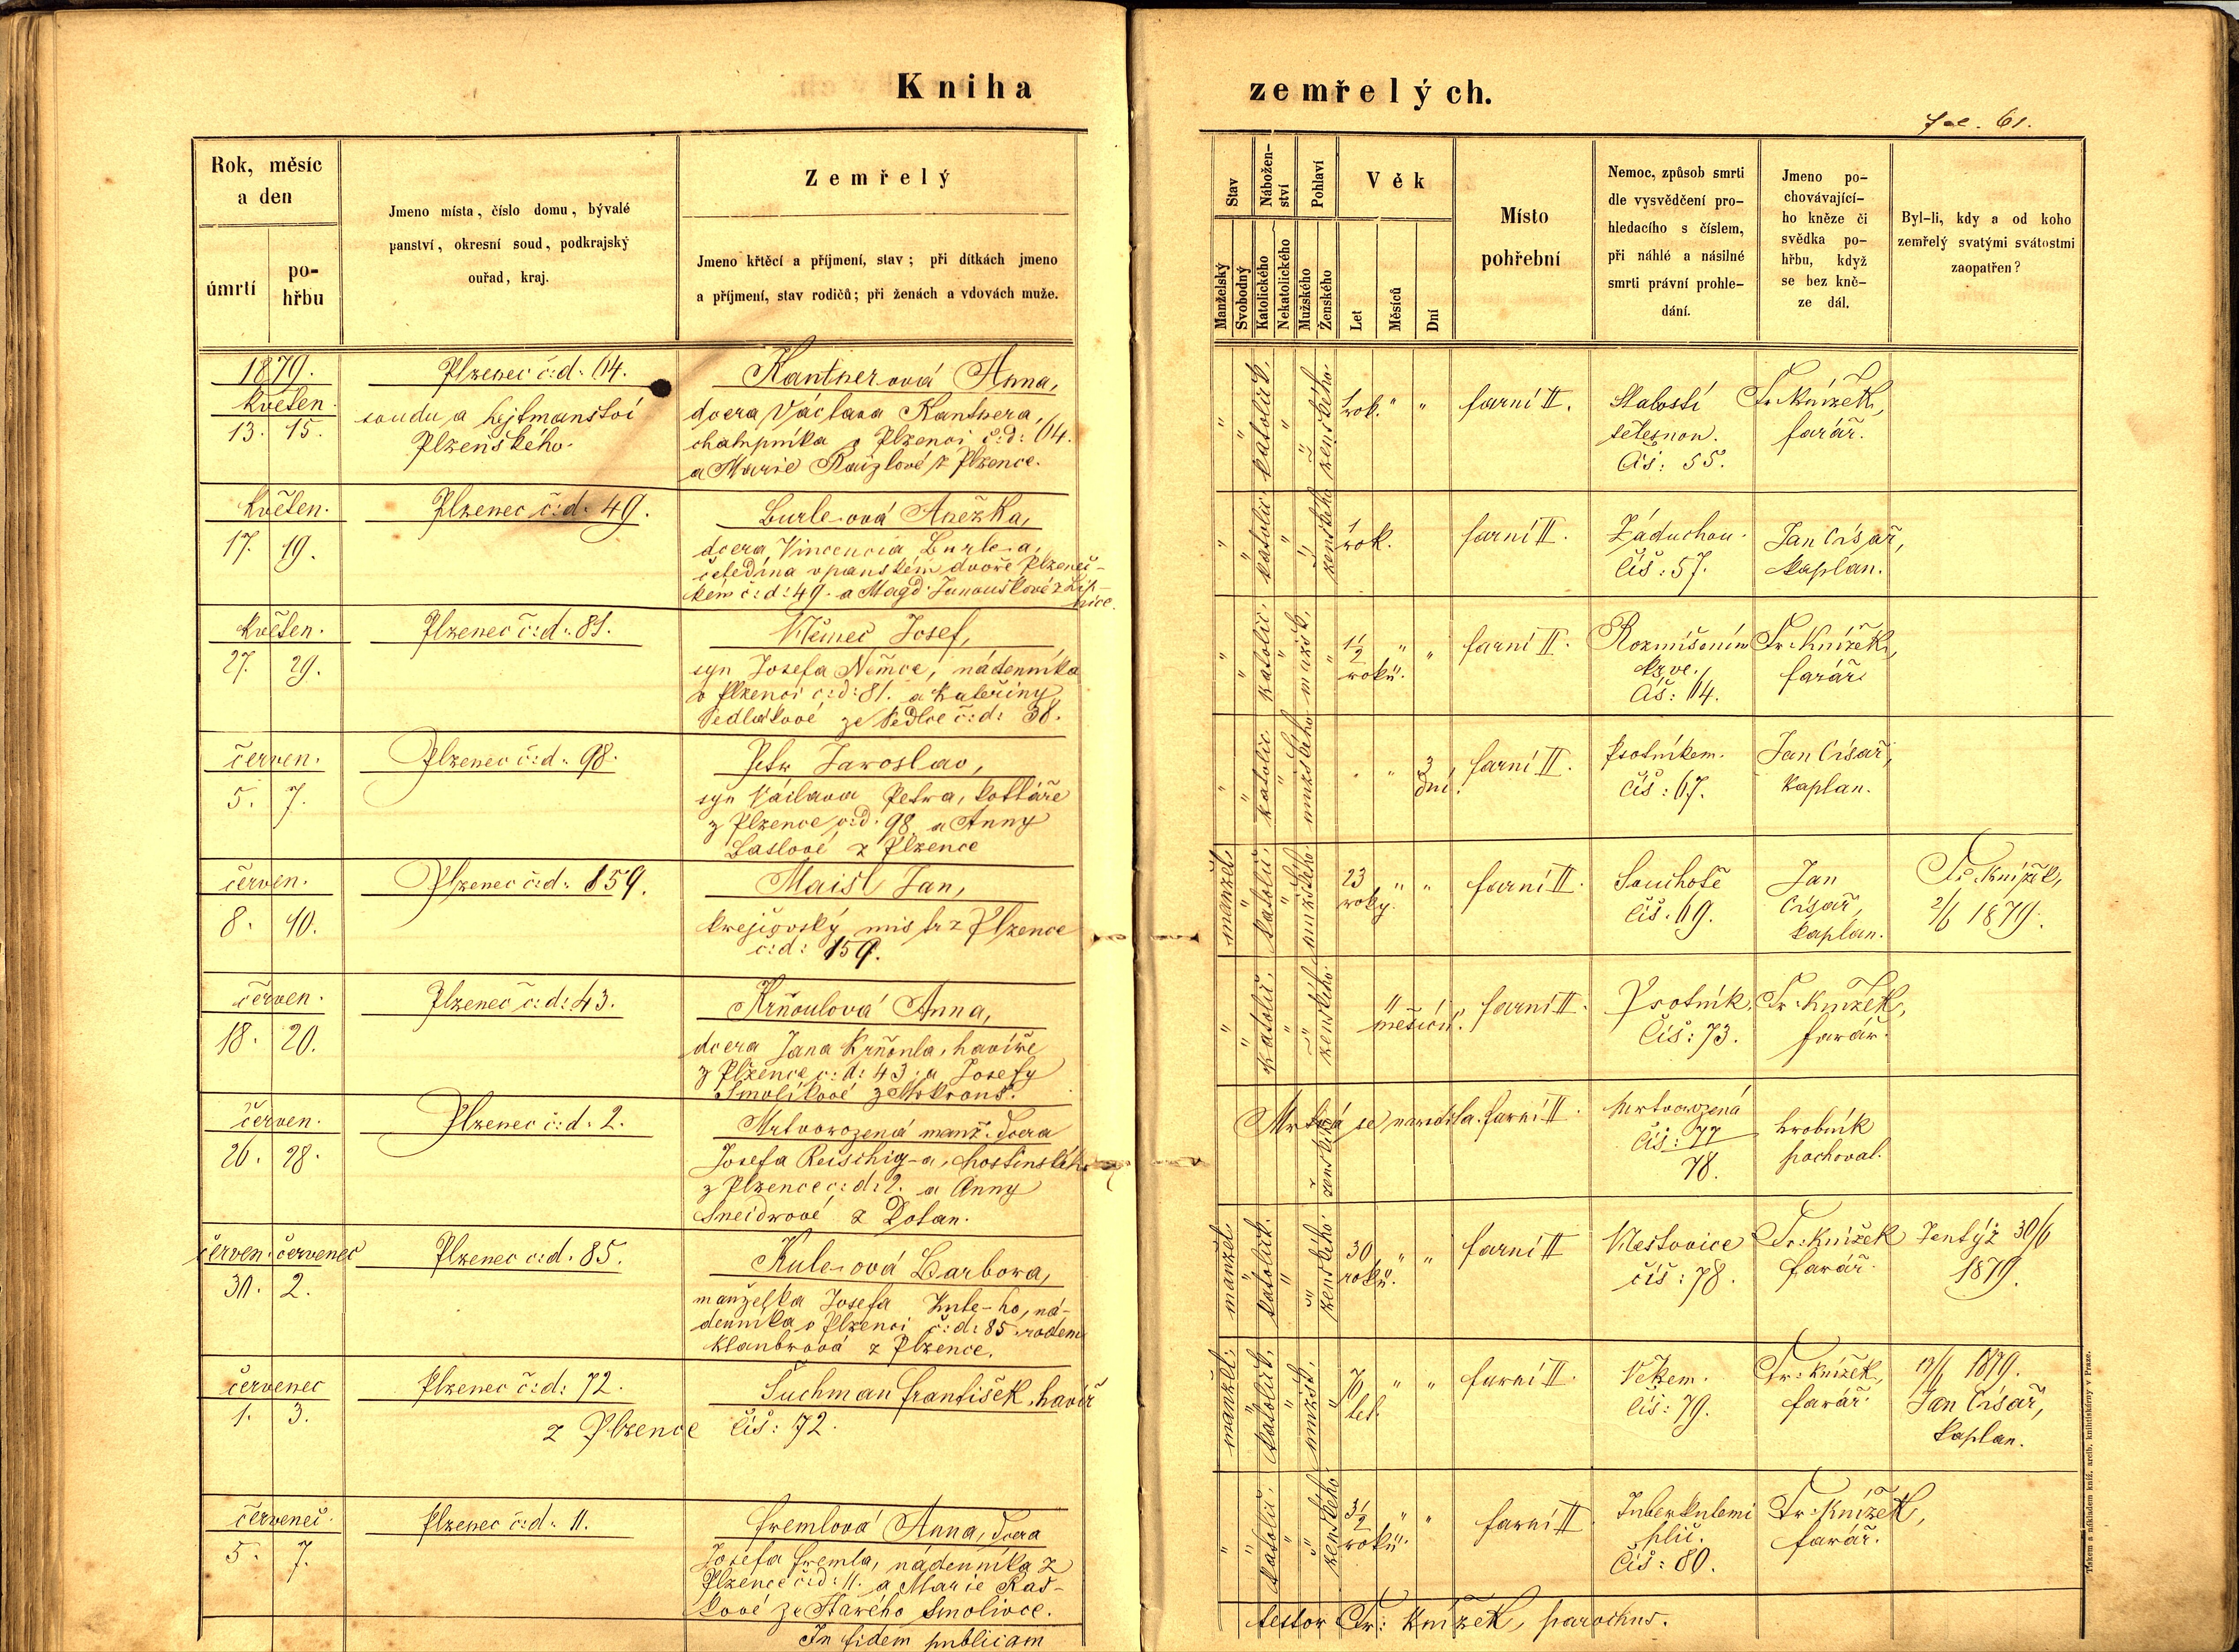 Kniha zemřelých.
fol. 61.
Rok, měsíc
a den
úmrtí
po-
hřbu
Jmeno místa, číslo domu, bývalé
panství, okresní soud, podkrajský
ouřad, kraj.
Zemřelý
Jmeno křtěcí a příjmení, stav; při dítkách jmeno
a příjmení, stav rodičů; při ženách a vdovách muže.
Stav
Manželský
Svobodný
Nábožen-
ství
Katolického
Nekatolického
Pohlaví
Mužského
Ženského
Věk
Let
Měsíců
Dní
Místo
pohřební
Nemoc, způsob smrti
dle vysvědčení pro-
hledacího s číslem,
při náhlé a násilné
smrti právní prohle-
dání.
Jmeno po-
chovávající-
ho kněze či
svědka po-
hřbu, když
se bez kně-
ze dál.
Byl-li, kdy a od koho
zemřelý svatými svátostmi
zaopatřen?
1879.
květen.
13. 15.
Plzenec č:d: 64.
soudu a hejtmanství
Plzeňského.
Kantnerová Anna,
dcera Václava Kantnera,
chalupníka v Plzenci č:d: 64.
a Marie Raizlové z Plzence.
" " katolick. " " ženského.
1 rok. " "
farní II.
Slabostí
tělesnou.
Čís: 55.
Fr. Knížek,
farář.
květen.
17. 19.
Plzenec č:d: 49.
Burle-ová Anežka,
dcera Vincencia Burle-a,
čeledína v panském dvoře Plzenec-
kém č:d: 49. a Magd. Janouškové z Lip-
nice.
" " katolic. " " ženského
1 rok.
farní II.
Záduchou.
Čís: 57.
Jan Císař,
kaplan.
květen.
27. 29.
Plzenec č:d: 81.
Němec Josef,
syn Josefa Němce, nádenníka
v Plzenci č:d: 81. a Kateřiny
Sedlákové ze Sedlce č:d: 38.
" " katolic. " mužsk. "
1/2 roků. " "
farní II.
Rozmíšením
krve.,
Čís: 64.
Fr. Knížek,
farář.
červen.
5. 7.
Plzenec č:d: 98.
Petr Jaroslav,
syn Václava Petra, kotláře
z Plzence č:d: 98 a Anny
Baslové z Plzence
" " katolic " mužského
" " 3 dní.
farní II.
Psotníkem.
čís: 67.
Jan Císař,
kaplan.
červen.
8. 10.
Plzenec č:d: 159.
Maisl Jan,
krejčovský mistr z Plzence
č:d: 159.
manžel. " katolic. " mužského.
23 roky. " "
farní II.
Souchotě
čís. 69.
Jan
Císař,
kaplan.
Fr. Knížek,
2/6 1879.
červen.
18. 20.
Plzenec č:d: 43.
Krňoulová Anna,
dcera Jana Krňoula, havíře
z Plzence č:d: 43. a Josefy
Smolíkové z Mokrouš.
" " katolic. " " ženského.
11 měsíců.
farní II.
Psotník.
Čís: 73.
Fr. Knížek,
farář.
červen.
26. 28.
Plzenec č:d: 2.
Mrtvorozená manž. dcera
Josefa Reischig-a, hostinského
z Plzence č:d: 2. a Anny
Šneidrové z Dolan.
Mrtvá se narodila. ženského
farní II.
Mrtvorozená
Čís: 77
78.
hrobník
pochoval.
červen. červenec
30. 2.
Plzenec č:d. 85.
Kule-ová Barbora,
manželka Josefa Kule-ho, ná-
denníka v Plzenci č:d: 85 rodem
Klaubrová z Plzence.
manžel. " katolick. " " ženského.
30 roků. " "
farní II
Nestovice
čís: 78.
Fr. Knížek
farář.
Tentýž 30/6
1879.
červenec
1. 3.
Plzenec č:d: 72.
Suchman František, havíř
z Plzence čís: 72.
manžel. " katolick. " mužsk. "
70 let. " "
farní II.
Věkem.
čís: 79.
Fr. Knížek,
farář.
1879.
Jan Císař,
kaplan.
červenec.
5. 7.
Plzenec č:d: 11.
Fremlová Anna, dcera
Josefa Fremla, nádenníka z
Plzence č:d: 11. a Marie Raš-
kové ze Starého Smolivce.
" " katolic. " " ženského.
3 1/2 roků. " "
farní II
Tuberkulemi
plic.
Čís: 80.
Fr. Knížek,
farář.
In fidem publicam
testor Fr: Knížek, parochus.
Tiskem a nákladem kníž. arcib. knihtiskárny v Praze.